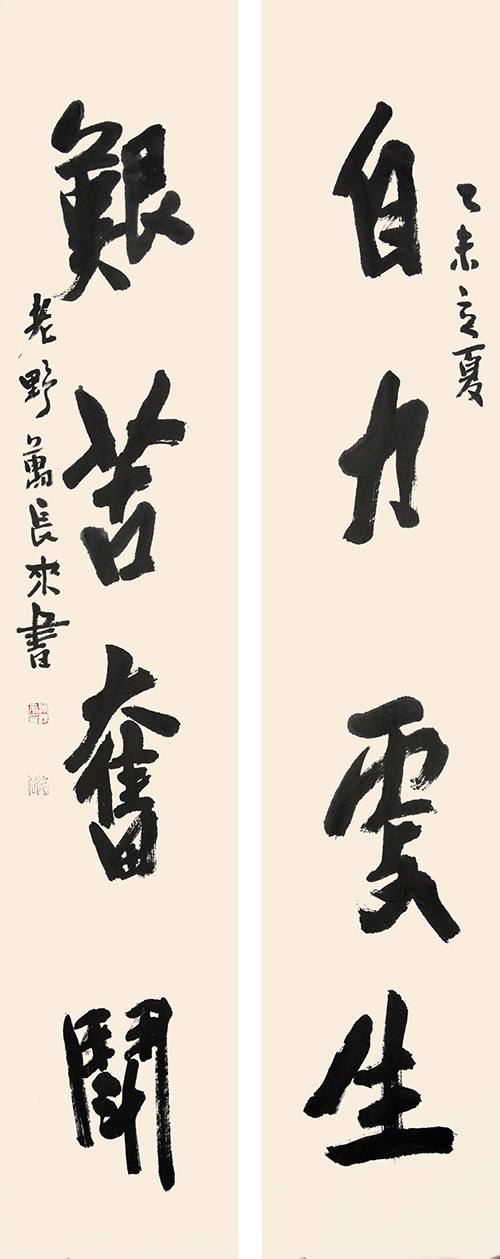 乙未立夏
自力更生
艱苦奮鬦
老野萬長來書